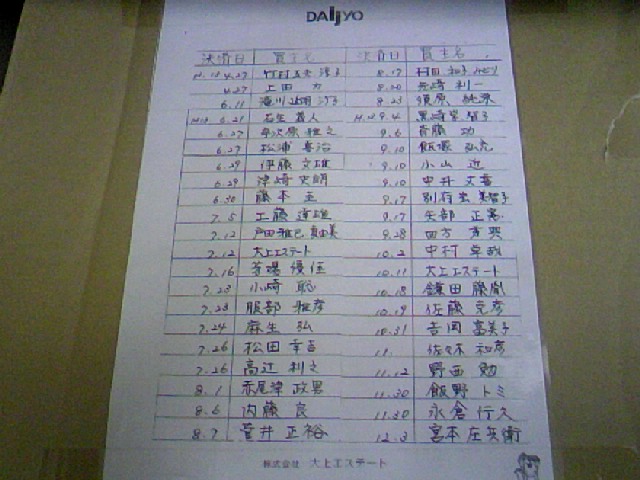 DAIJYO
決済日 買主名 決済日 買主名
4.27 8.17 村田 和子
4.27 上田 力 8.20 矢崎 利一
6.11 滝川 8.23 須原
6.21 9.4 黒崎
6.27 雅之 9.6 斉藤 功
6.27 松浦 喜治 9.10 飯塚 弘亮
6.29 伊藤 文雄 9.10 小山 進
6.29 津崎 史朗 9.10 中井 文喜
6.30 藤本 圭 9.17 別府 宏 美智子
7.5 工藤 道雄 9.17 矢部 正憲
7.12 戸田 雅已 真由美 9.28 四方
7.12 大上エステート 10.2 中村 卓哉
7.16 優佳 10.11 大上エステート
7.23 小崎 聡 10.18 鎌田 勝胤
7.23 服部 雅彦 10.19 佐藤 克彦
7.24 麻生 弘 10.31 吉岡 富美子
7.26 松田 幸吉 11. 佐々木 和彦
7.26 高辻 利之 11.12 野西 勉
8.1 赤尾津 政男 11.30 飯野 トミ
8.6 内藤 良 11.30 永倉 行久
8.7 菅井 正裕 12.3 宮本 庄兵衛
株式会社 大上エステート